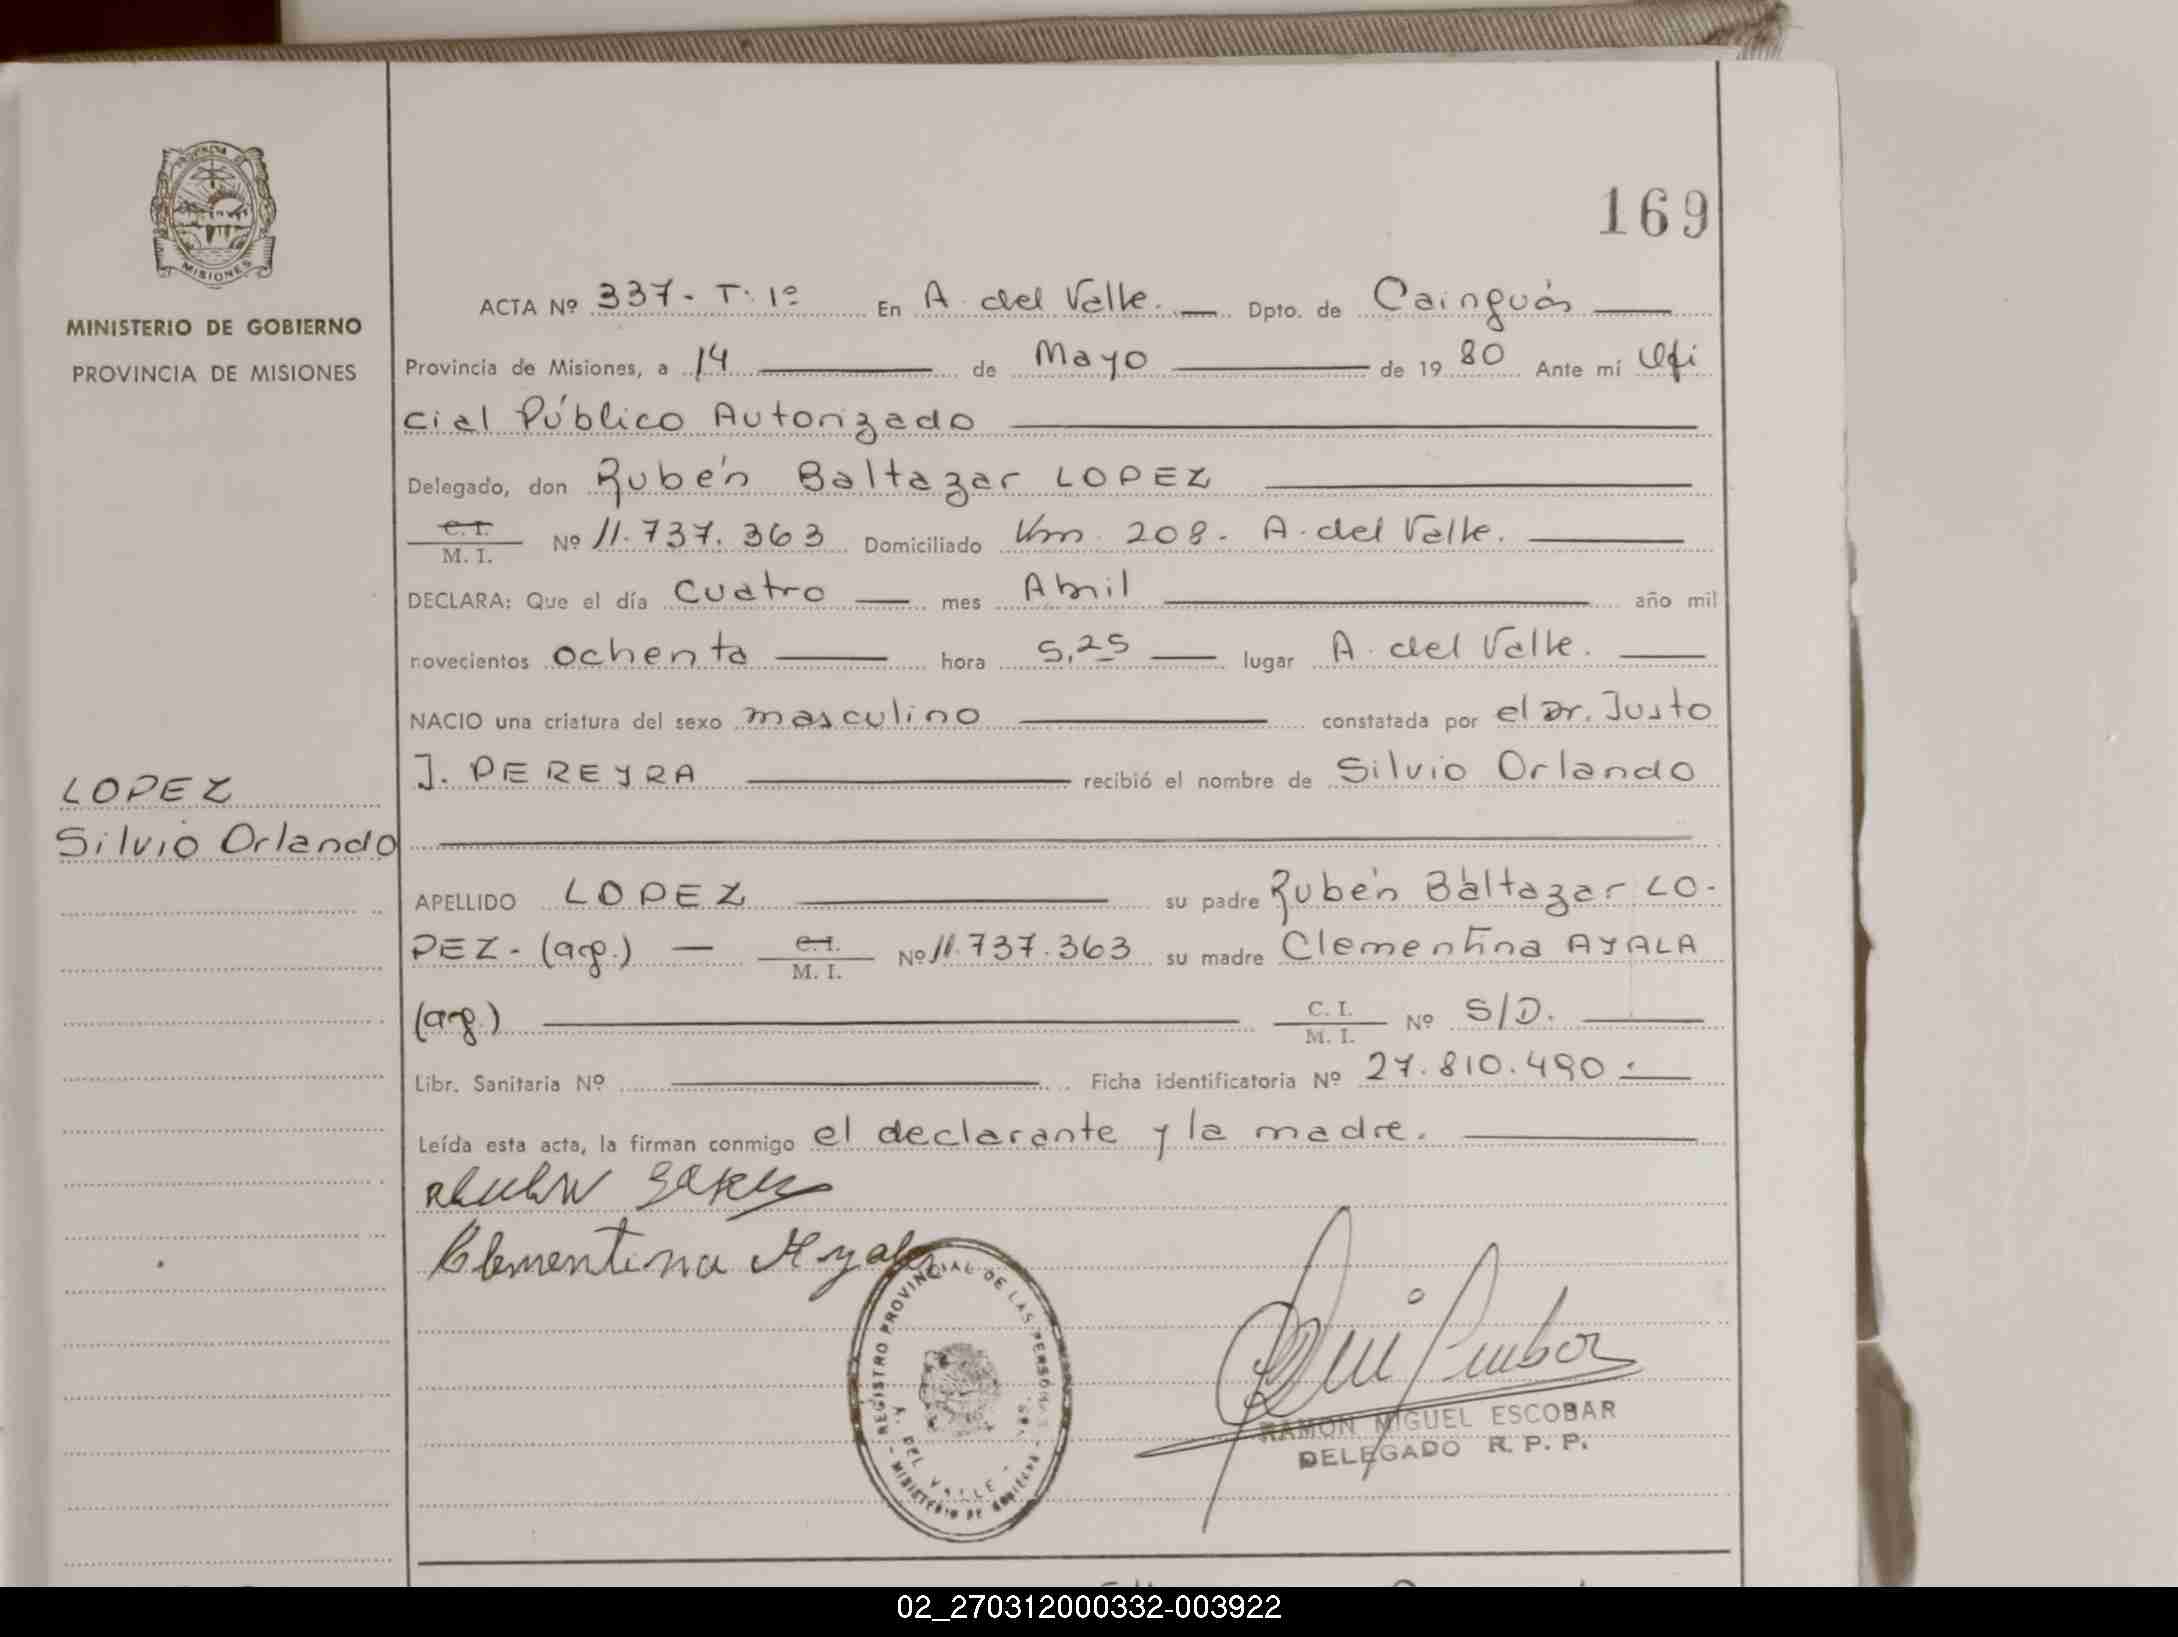 PROVINCIA DE
MISIONES
MINISTERIO DE GOBIERNO
PROVINCIA DE MISIONES
LOPEZ
Silvio Orlando
169
ACTA Nº 337- T: 1º En A. del Valle. Dpto. de Cainguás
Provincia de Misiones, a 14 de Mayo de 19 80 Ante mí Ofi
cial Público Autorizado
Delegado, don Rubén Baltazar LOPEZ
C. I.
M. I. Nº 11.737.363 Domiciliado Km. 208- A. del Valle.
DECLARA: Que el día Cuatro mes Abril año mil
novecientos ochenta hora 5,25 lugar A. del Valle.
NACIO una criatura del sexo masculino constatada por el Dr. Justo
J. PEREYRA recibió el nombre de Silvio Orlando
APELLIDO LOPEZ su padre Rubén Baltazar LO-
PEZ- (arg.) C. I. M. I. Nº 11.737.363 su madre Clementina AYALA
(arg.) C. I. M. I. Nº S/D.
Libr. Sanitaria Nº Ficha identificatoria Nº 27.810.490.
Leída esta acta, la firman conmigo el declarante y la madre.
Clementina Ayala
REGISTRO PROVINCIAL DE LAS PERSONAS
A. DEL VALLE
- MINISTERIO DE GOBIERNO -
RAMON MIGUEL ESCOBAR
DELEGADO R. P. P.
02_270312000332-003922